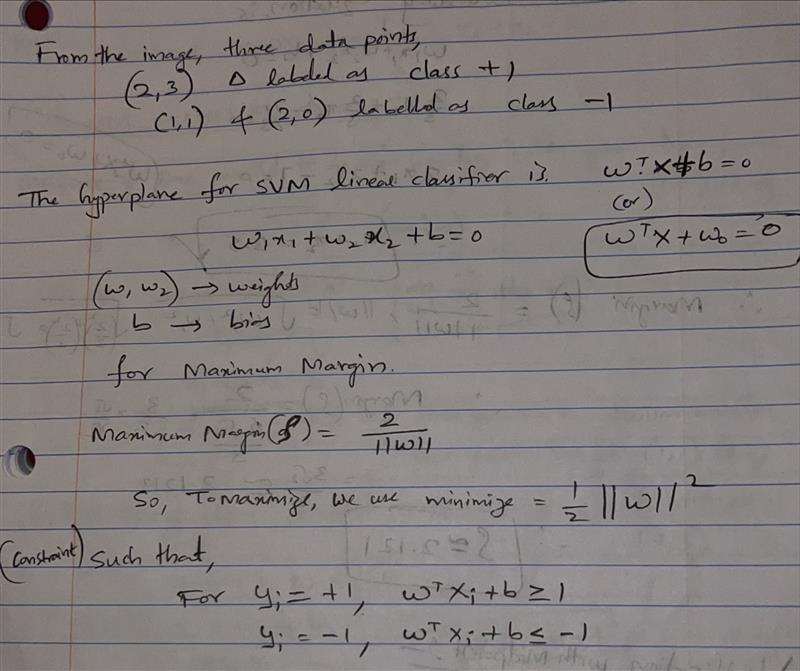 From the image, three data points,
(2,3) Δ labeled as class +1
(1,1) & (2,0) labelled as class -1
The hyperplane for SVM linear classifier is. wᵀx+b=0
(or)
w₁x₁+w₂x₂+b=0 wᵀx+w₀=0
(w, w₂) → weights
b → bias
for Maximum Margin.
Maximum Margin(ρ) = 2/||w||
So, To maximize, we use minimize = 1/2 ||w||²
(Constraint) Such that,
For yᵢ=+1, wᵀxᵢ+b≥1
yᵢ=-1, wᵀxᵢ+b≤-1